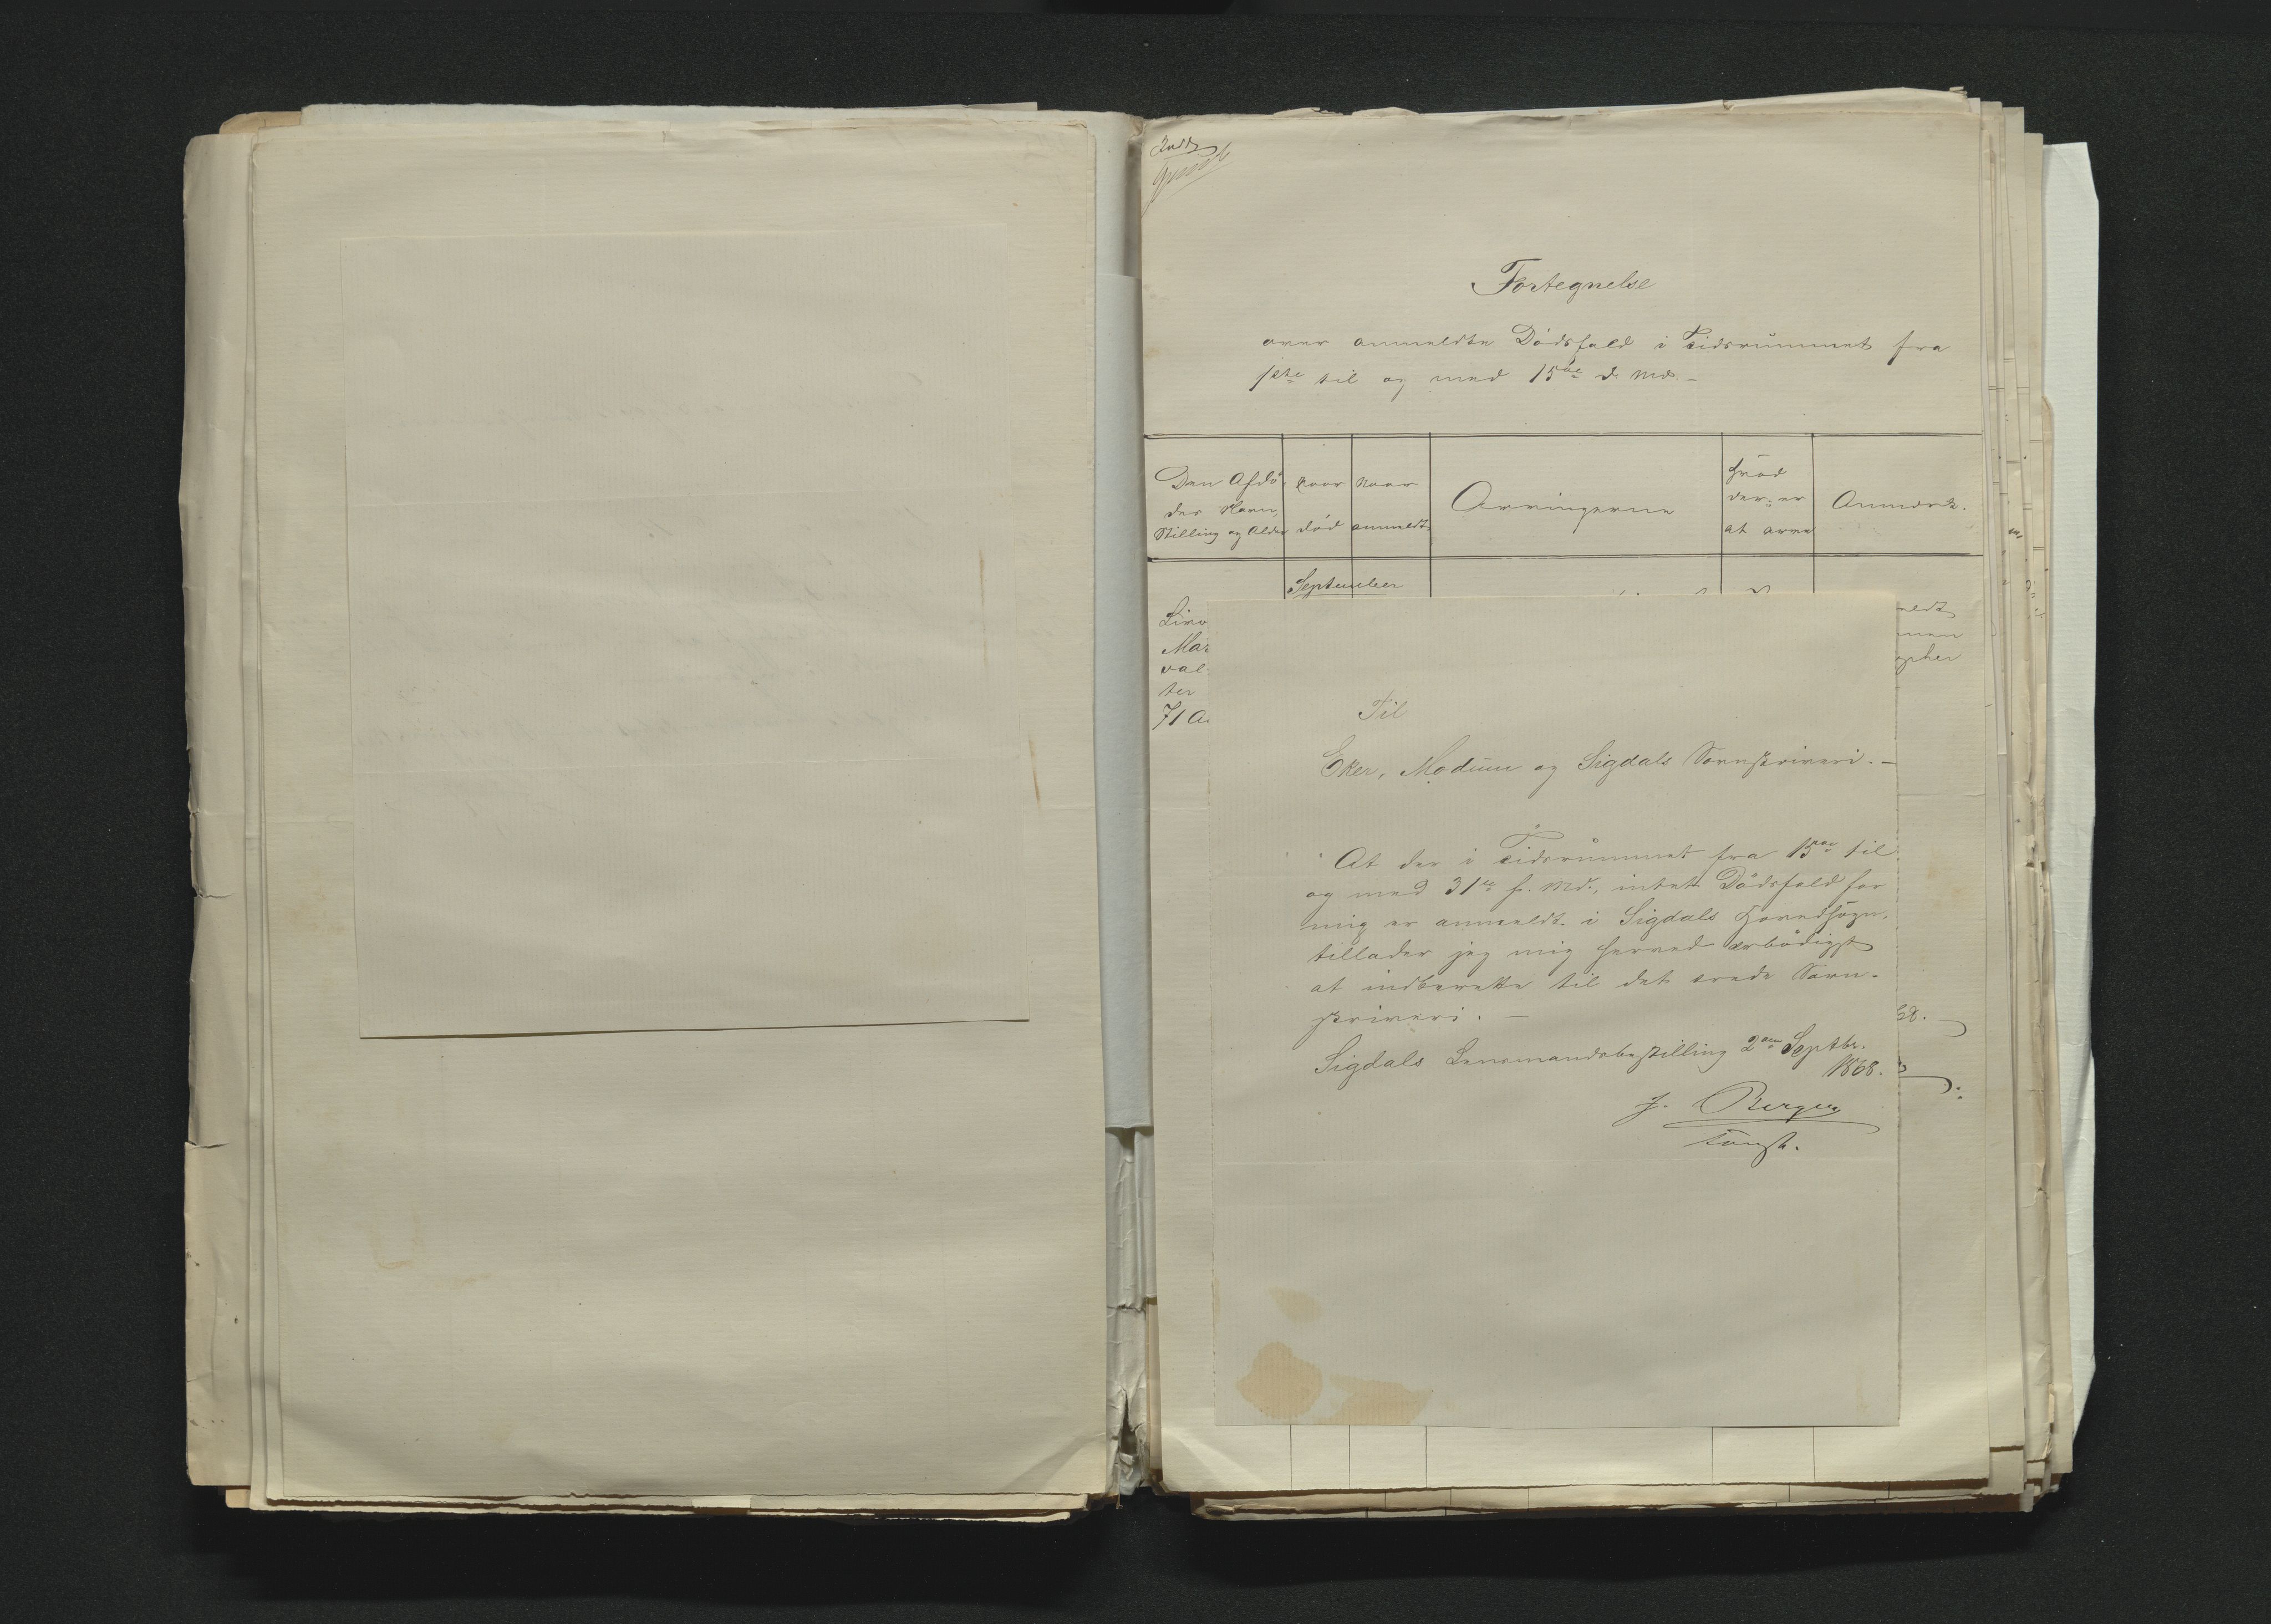 Fortegnelse
over anmeldte Dødsfald i Tidsrummet fra
1ste til og med 15de d. Md. –
Den Afdø-
des Navn,
Stilling og Alder
naar
død
naar
anmeldt
Arvingerne
Hvad
der er
at arve
Anmærk.
September
71 A
Til
Eker, Modum og Sigdals Sorenskriveri. –
At der i Tidsrummet fra 15de til
og med 31te f. Md., intet Dødsfald for
mig er anmeldt i Sigdals Hovedsogn,
tillader jeg mig herved ærbødigst
at indberette til det ærede Soren-
skriveri. –
Sigdals Lensmandsbestilling 2den Septbr.
1868.
J. Bergan
konst.